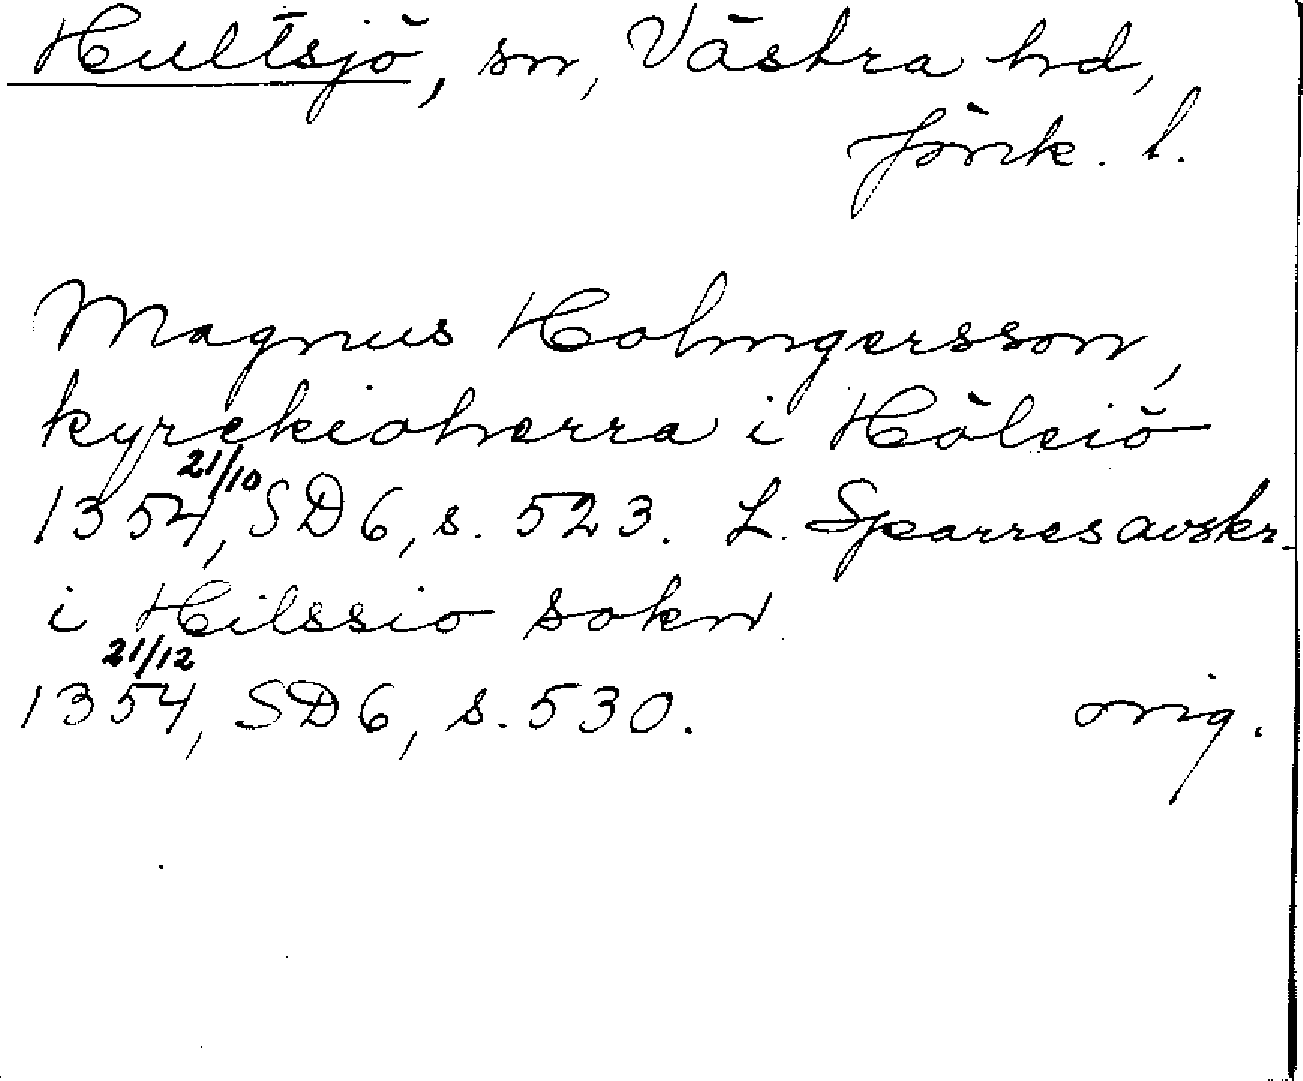 Hultsjö, sn, Västra hd,
Jönk. l.
Magnus Holmgersson,
kyrckioherra i Hölsiö
1354 21/10, SD6, s. 523. L. Sparres avskr.
i Hilssio sokn
1354 21/12, SD6, s. 530. orig.